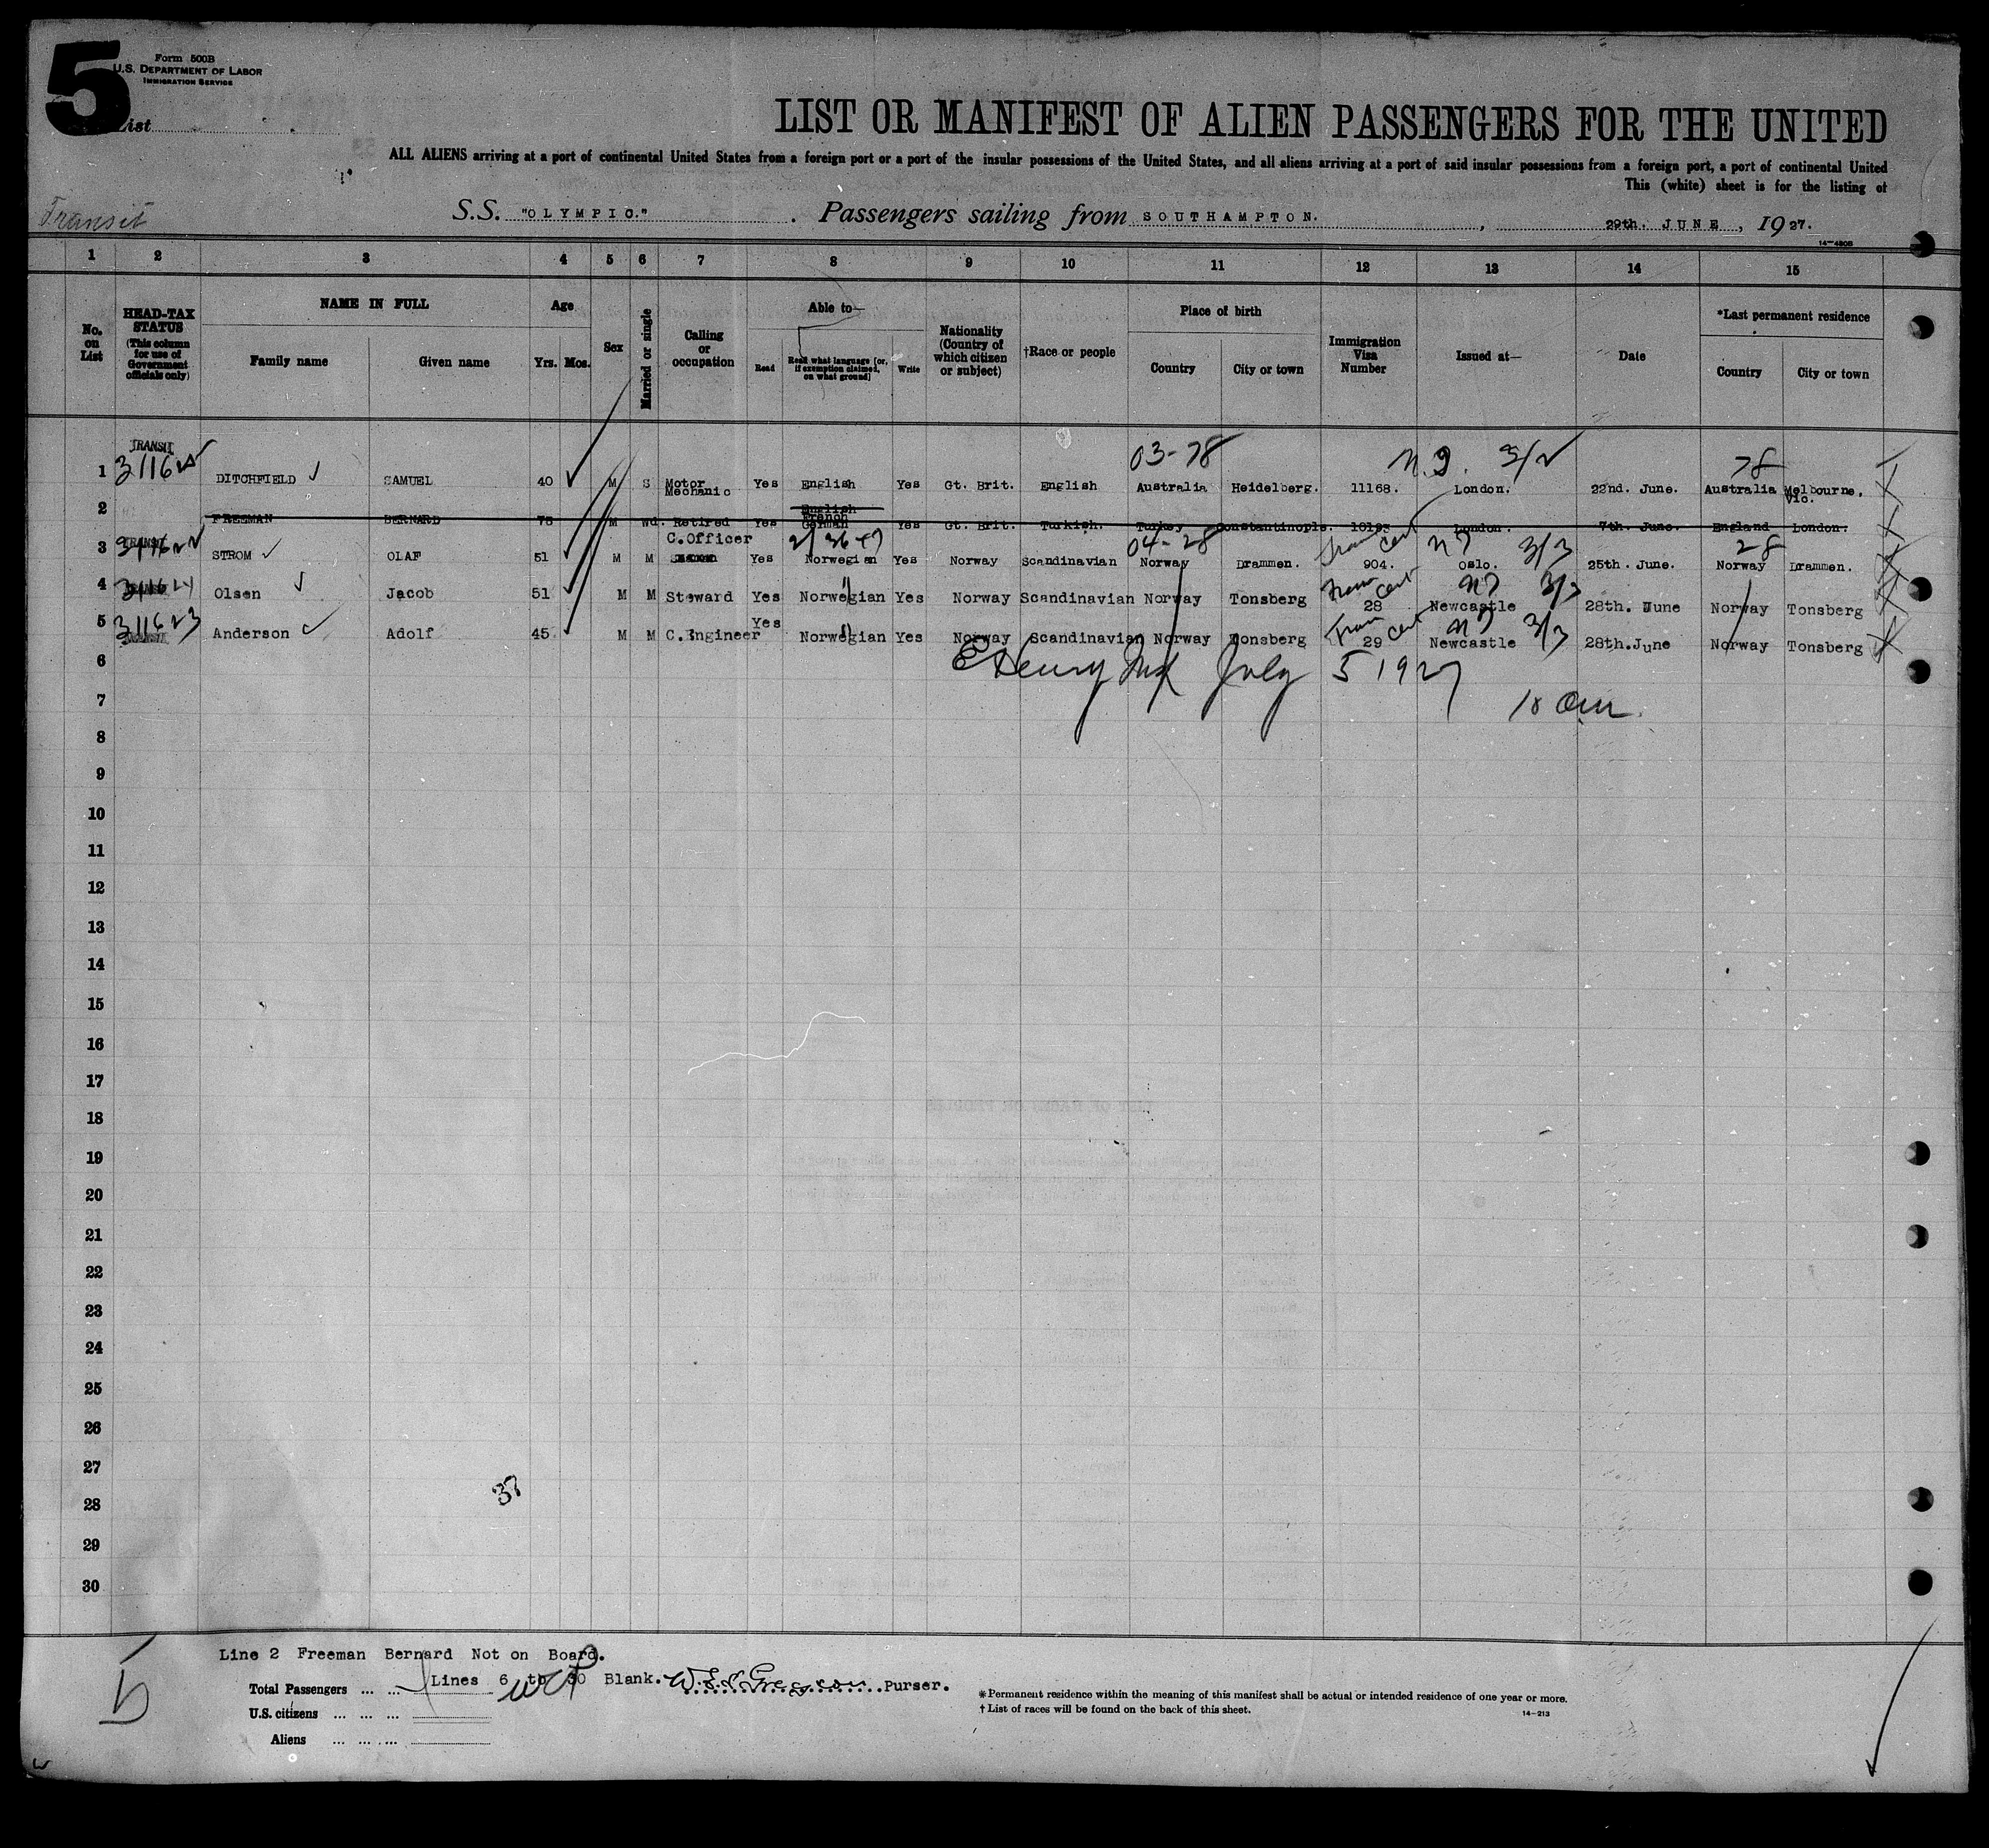 5
Form 500B
U.S. DEPARTMENT OF LABOR
IMMIGRATION SERVICE
List
LIST OR MANIFEST OF ALIEN PASSENGERS FOR THE UNITED
ALL ALIENS arriving at a port of continental United States from a foreign port or a port of the insular possessions of the United States, and all aliens arriving at a port of said insular possessions from a foreign port, a port of continental United
This (white) sheet is for the listing of
Transit
S.S. "OLYMPIC." . Passengers sailing from SOUTHAMPTON. , 29th. JUNE , 1927.
14-480B
1 2 3 4 5 6 7 8 9 10 11 12 13 14 15
No. on List
HEAD-TAX STATUS (This column for use of Government officials only)
NAME IN FULL
Family name Given name
Age
Yrs. Mos.
Sex
Married or single
Calling or occupation
Able to—
Read Read what language [or, if exemption claimed, on what ground] Write
Nationality (Country of which citizen or subject)
†Race or people
Place of birth
Country City or town
Immigration Visa Number
Issued at—
Date
*Last permanent residence
Country City or town
TRANSIT 03-78 N.D. 3/2 78
1 DITCHFIELD SAMUEL 40 M S Motor Mechanic Yes English Yes Gt. Brit. English Australia Heidelberg. 11168. London. 22nd. June. Australia Melbourne, Vic.
2 FREEMAN BERNARD 75 M Wd. Retired Yes English French German Yes Gt. Brit. Turkish. Turkey Constantinople. 10195 London. 7th. June. England London.
C.Officer 04-28 3/3 28
3 STROM OLAF 51 M M Yes Norwegian Yes Norway Scandinavian Norway Drammen. Tran Cert 904. Oslo. 25th. June. Norway Drammen.
4 Olsen Jacob 51 M M Steward Yes Norwegian Yes Norway Scandinavian Norway Tonsberg Tran Cert 28 Newcastle 3/3 28th. June Norway Tonsberg
5 311623 Anderson Adolf 45 M M C.Engineer Yes Norwegian Yes Norway Scandinavian Norway Tonsberg Tran Cert 29 Newcastle 3/3 28th.June Norway Tonsberg
6 Henry July 5 1927
7 10 am.
8
9
10
11
12
13
14
15
16
17
18
19
20
21
22
23
24
25
26
27
28 37
29
30
Line 2 Freeman Bernard Not on Board.
Lines 6 to 30 Blank. Purser.
Total Passengers ... ...
U.S. citizens ... ... ...
Aliens ... ... ...
*Permanent residence within the meaning of this manifest shall be actual or intended residence of one year or more.
†List of races will be found on the back of this sheet.
14-213